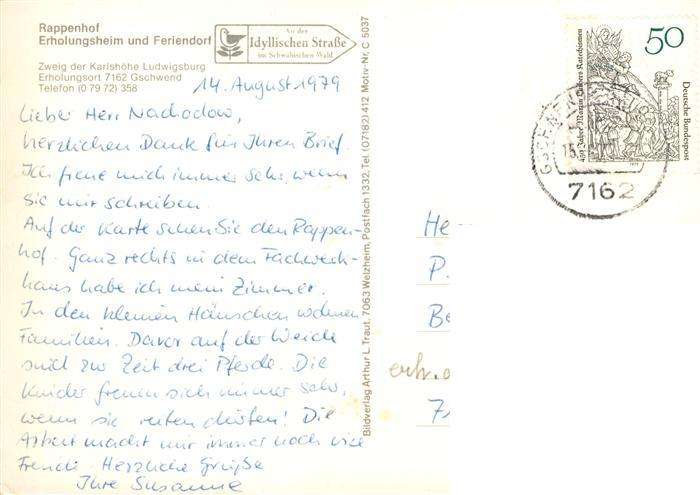 Rappenhof
Erholungsheim und Feriendorf
Zweig der Karlshöhe Ludwigsburg
Erholungsort 7162 Gschwend
Telefon (0 79 72) 358
An der
Idyllischen Straße
im Schwäbischen Wald
14. August 1979
Lieber Herr Nachodow,
herzlichen Dank für Ihren Brief.
Ich freue mich immer sehr, wenn
Sie mir schreiben.
Auf der Karte sehen Sie den Rappen-
hof. Ganz rechts in dem Fachwerk-
haus habe ich mein Zimmer.
In den kleinen Häuschen wohnen
Familien. Davor auf der Weide
sind zur Zeit drei Pferde. Die
Kinder freuen sich immer sehr,
wenn sie reiten dürfen! Die
Arbeit macht mir immer noch viel
Freude. Herzliche Grüße
Ihre Susanne
Bildverlag Arthur L. Traut, 7063 Welzheim, Postfach 1332, Tel. (07182) 412 Motiv-Nr. C 5037
50
Deutsche Bundespost
450 Jahre Martin Luthers Katechismen
1979
7162
He
P.
Be
erh.
7